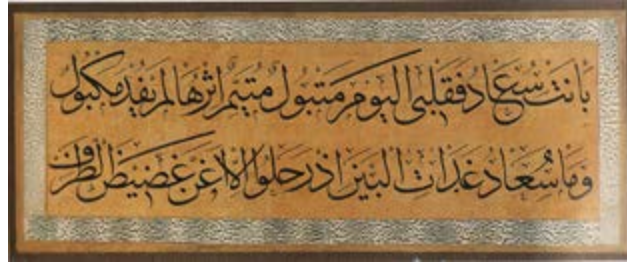 بَانَتْ سُعَادُ فَقَلْبِي الْيَوْمَ مَتْبُولُ مُتَيَّمٌ اِثْرَهَا لَمْ يُفْدَ مَكْبُولُ
وَمَا سُعَادُ غَدَاتَ الْبَيْنِ اِذْ رَحَلُوا اِلَّا اَغَنُّ غَضِيضُ الطَّرْفِ